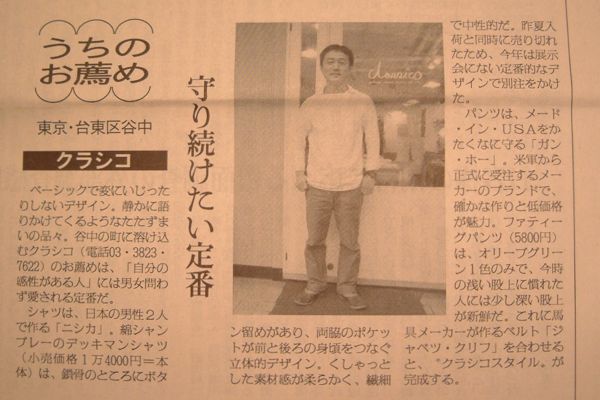 うちの
お薦め
東京・台東区谷中
クラシコ
守り続けたい定番
ベーシックで変にいじった
りしないデザイン。静かに語
りかけてくるようなたたずま
いの品々。谷中の町に溶け込
むクラシコ(電話03・3823・
7622)のお薦めは、「自分の
感性がある人」には男女問わ
ず愛される定番だ。
シャツは、日本の男性2人
で作る「ニシカ」。綿シャン
ブレーのデッキマンシャツ
(小売価格1万4000円=本
体)は、鎖骨のところにボタ
ン留めがあり、両脇のポケッ
トが前と後ろの身頃をつなぐ
立体的デザイン。くしゃっと
した素材感が柔らかく、繊細
で中性的だ。昨夏入
荷と同時に売り切れ
たため、今年は展示
会にない定番的なデ
ザインで別注をかけ
た。
パンツは、メード
・イン・USAをか
たくなに守る「ガン
・ホー」。米軍から
正式に受注するメー
カーのブランドで、
確かな作りと低価格
が魅力。ファティー
グパンツ(5800円)
は、オリーブグリー
ン1色のみで、今時
の浅い股上に慣れた
人には少し深い股上
が新鮮だ。これに馬
具メーカーが作るベルト「ジ
ャベツ・クリフ」を合わせる
と、“クラシコスタイル”が
完成する。
classico